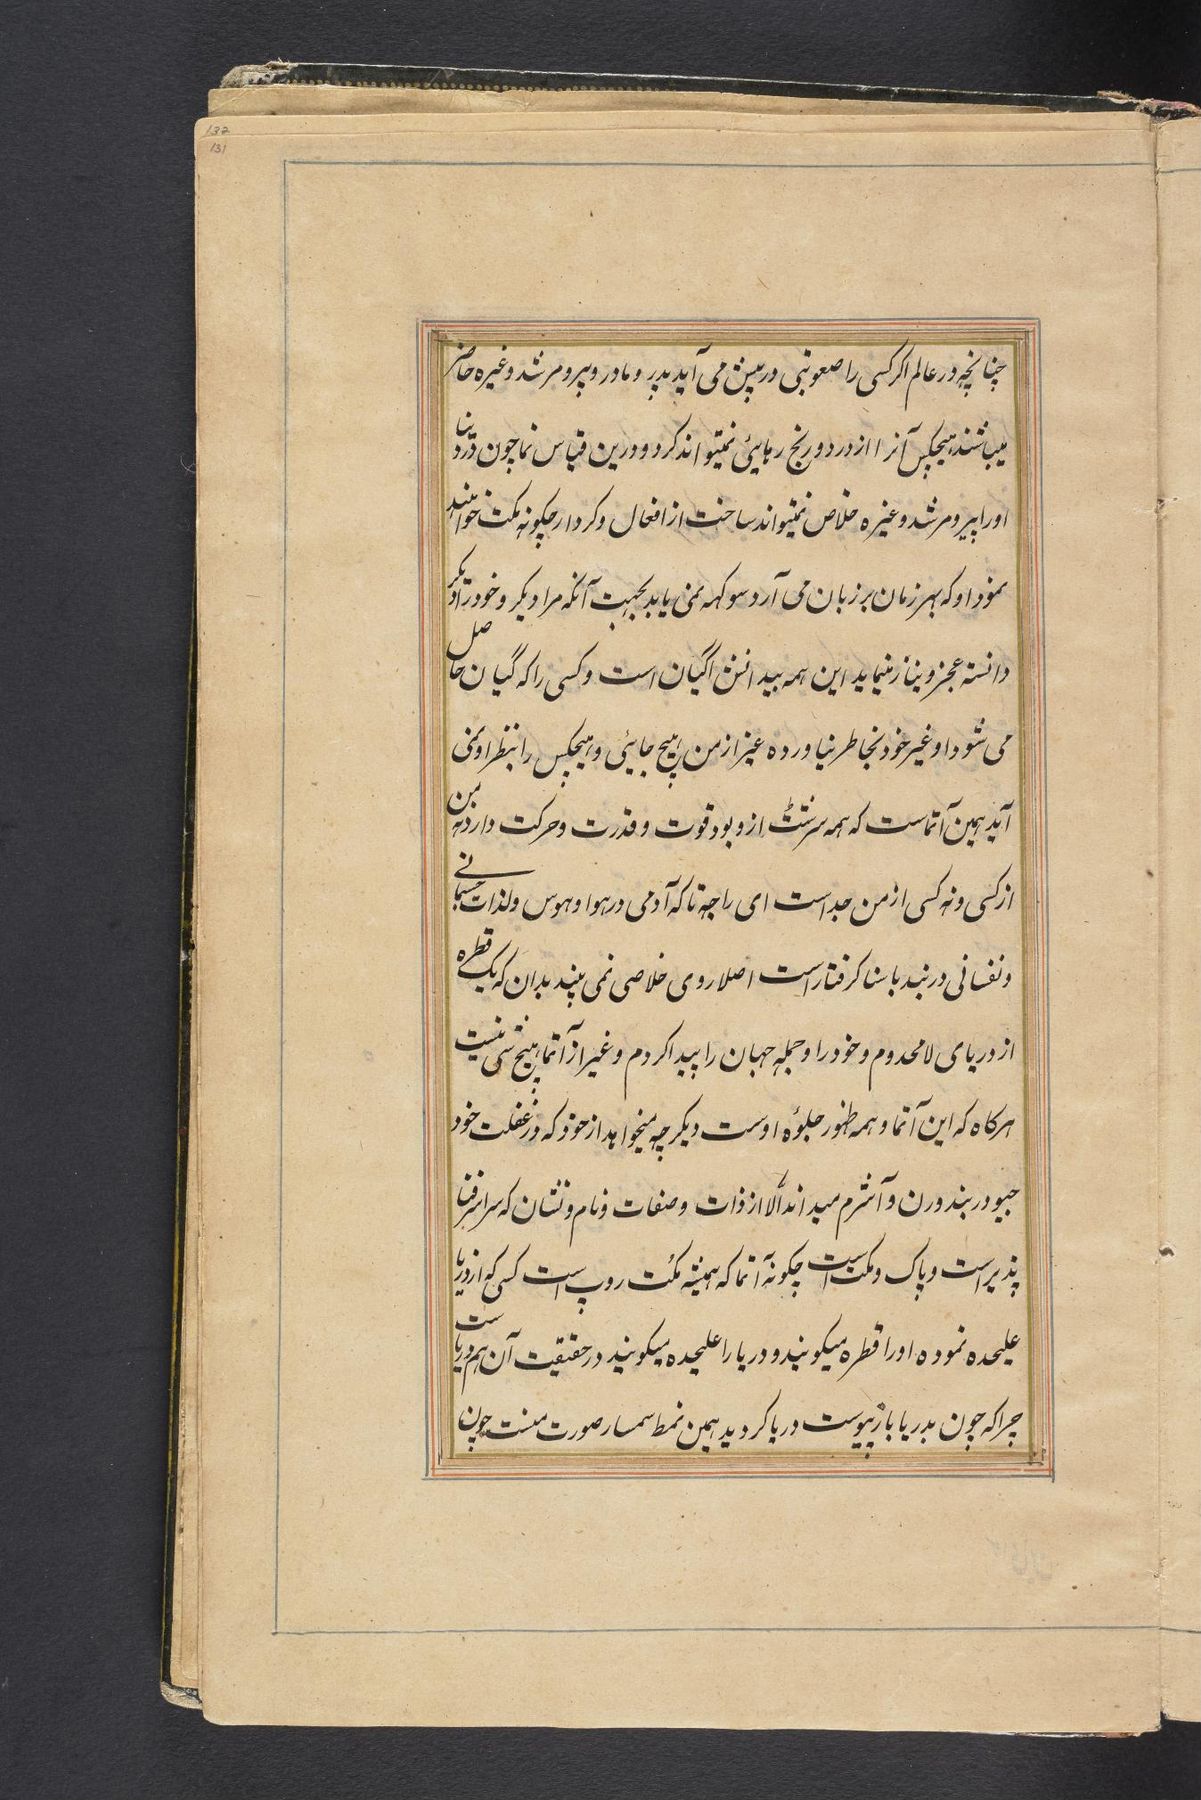 132
131
چنانچه در عالم اکر کسی را صعوبتی در پیش می آید پدر و مادر و پیر و مرشد و غیره حاضر
میباشند هیچکس آنرا از درد و رنج رهایئی نمیتواند کرد و درین قیاس نما چون درد دنیا
اورا پیر و مرشد و غیره خلاص نمیتواند ساخت از افعال و کردار چکونه مکت خواهند
نمود او که بهر زمان بر زبان می آرد سوکهه نمی یابد بجهت آنکه مرا دیکر و خود را دیکر
دانسته عجز و نیاز مینماید این همه بیدانش اگیان است و کسی را که گیان حاصل
می شود او غیر خود بخاطر نیاورده غیر از من هیچ جایئی و هیچکس را بنظر او نمی
آید همین آتماست که همه سرشٹ ازو بود قوت و قدرت و حرکت دارد نه من
از کسی و نه کسی از من جداست ای راجه تا که آدمی در هوا و هوس و لذات جسمانے
و نفسانی در بند باسنا کرفتار است اصلا روی خلاصی نمی بیند بدان که یک قطره
از دریای لامحدوم و خود را و جمله جهان را پیدا کردم و غیر از آتما هیچ شی نیست
هرکاه که این آتما و همه ظهور جلوۀ اوست دیکر چه میخواهد از خود که در غفلت خود
جیو در بند ورن و آشرم میداند الا از ذات و صفات و نام و نشان که سراسر فنا
پذیر است و پاک و مکت است چکونه آتما که همیشه مکت روپ است کسی که از دریا
علیحده نموده اورا قطره میکویند و دریا را علیحده میکویند در حقیقت آن هم دریاست
چراکه چون بدریا باز پیوست دریا کردید همین نمط سمسار صورت منست چون